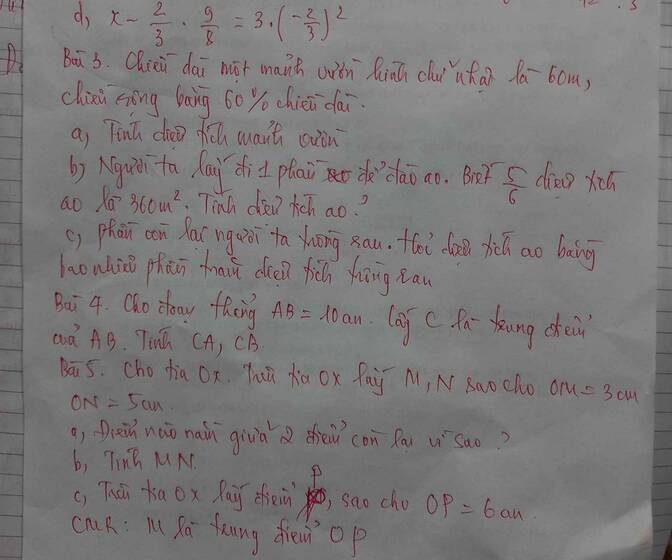 d, x - 2/3 . 9/8 = 3.(-2/3)²
Bài 3. Chiều dài một mảnh vườn hình chữ nhật là 60m,
chiều rộng bằng 60% chiều dài.
a, Tính diện tích mảnh vườn
b, Người ta lấy đi 1 phần để đào ao. Biết 5/6 diện tích
ao là 360m². Tính diện tích ao?
c, phần còn lại người ta trồng rau. Hỏi diện tích ao bằng
bao nhiêu phần trăm diện tích trồng rau
Bài 4. Cho đoạn thẳng AB = 10cm. Lấy C là trung điểm
của AB. Tính CA, CB
Bài 5. Cho tia Ox. Trên tia Ox lấy M, N sao cho OM = 3cm
ON = 5cm.
a, Điểm nào nằm giữa 2 điểm còn lại vì sao?
b, Tính MN.
c, Trên tia Ox lấy điểm P, sao cho OP = 6cm.
CMR: M là trung điểm OP